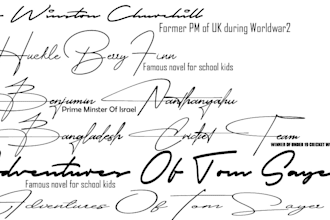 Winston Churchill
Former PM of UK during Worldwar2
Huckle Berry Finn
Famous novel for school kids
Benjumin Nanthanyahu
Prime Minster Of Israel
Bangladesh Cricket Team
WINNER OF UNDER 19 CRICKET W
Adventures Of Tom Sayer
Famous novel for school kids
Adventures Of Tom Sayer